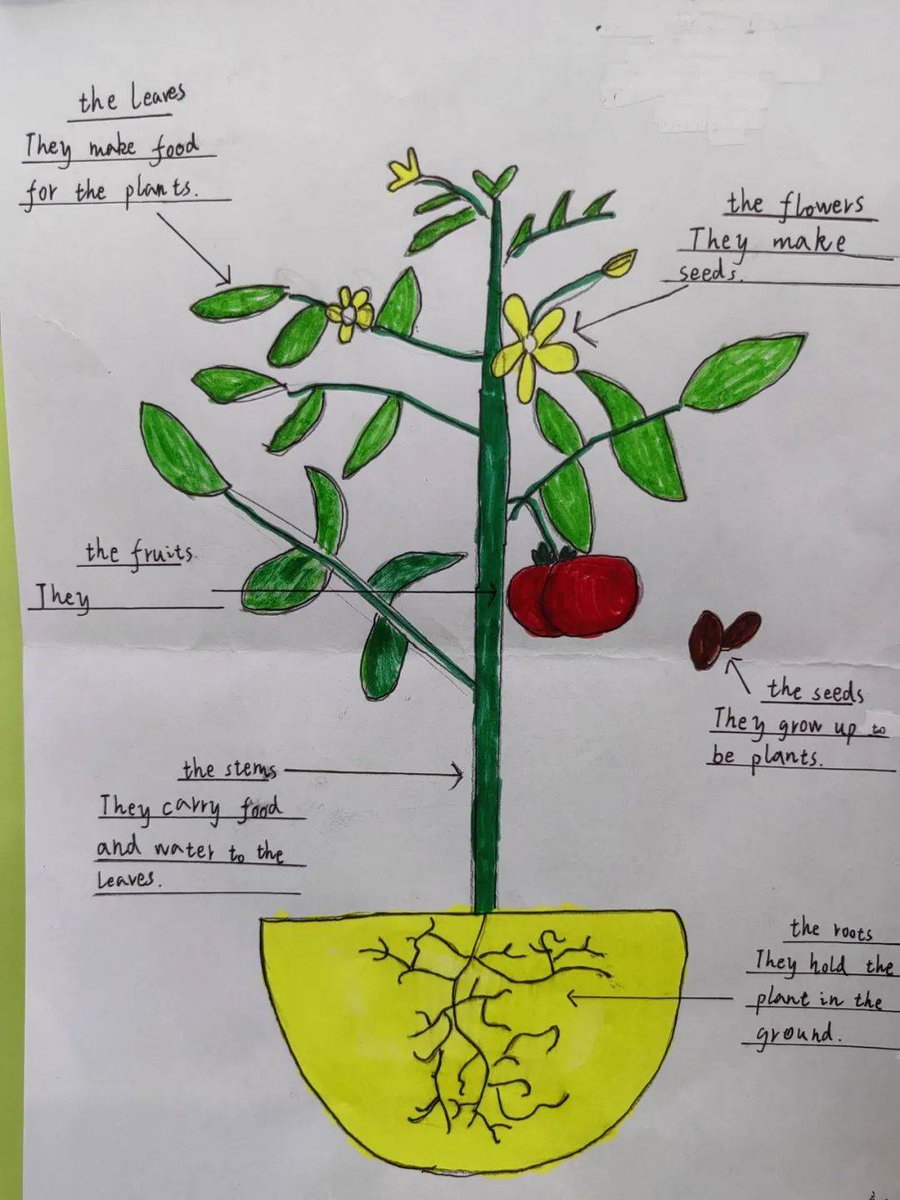 the leaves
They make food
for the plants.
the flowers
They make
seeds.
the fruits
They
the seeds
They grow up to
be plants.
the stems
They carry food
and water to the
leaves.
the roots
They hold the
plant in the
ground.